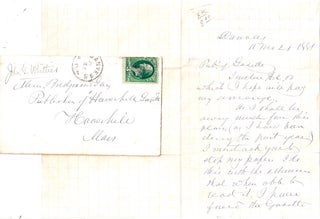 John G. Whittier
Bridgman & Gay
Publisher of Haverhill Gazette
Haverhill
Mass
Danvers
10 Mo 21 1881
Gazette
I enclose
which I hope will pay
my arrearage.
As I shall be
away much from this
place (as I have been
during the past year)
I must ask you to
stop my paper. I do
this with the assurance
that when able to
read it I have
found the Gazette